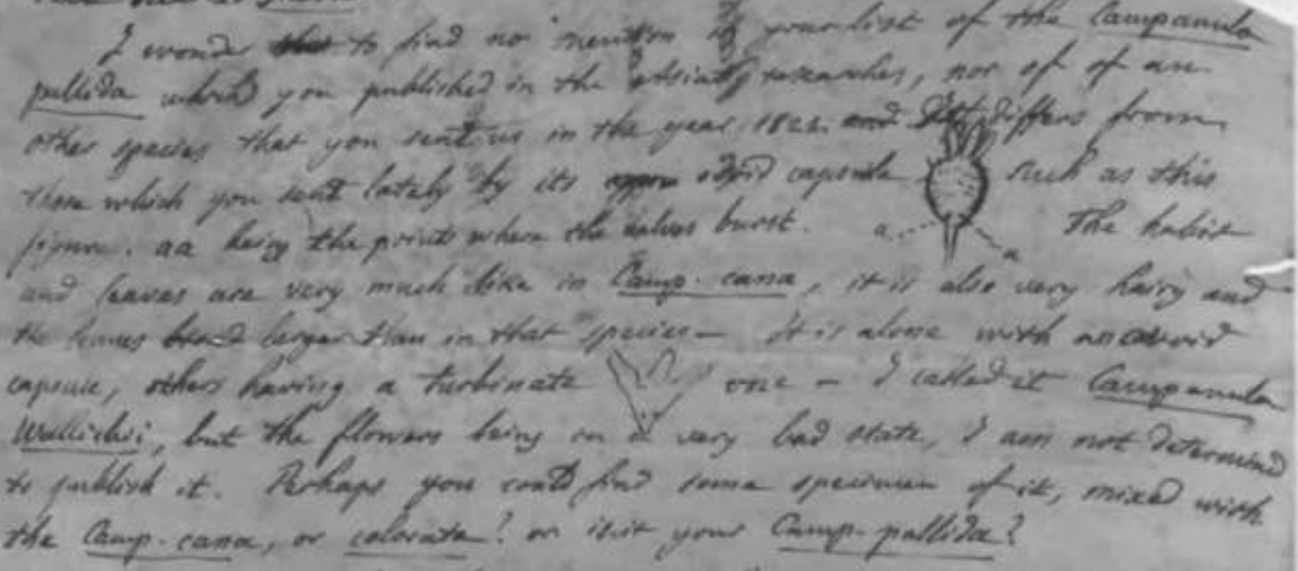 I wonder to find no mention in your list of the Campanula
pallida which you published in the asiatic researches, nor of of an
other species that you sent us in the year 1822. and differs from
those which you sent lately by its ovoid capsule such as this
figure. aa being the points where the valves burst. a a The habit
and leaves are very much like in Camp. cana, it is also very hairy and
the leaves larger than in that species – It is alone with an ovoid
capsule, others having a turbinate one – I called it Campanula
Wallichii, but the flowers being in a very bad state, I am not determined
to publish it. Perhaps you could find some specimen of it, mixed with
the Camp. cana, or colorata? or is it your Camp. pallida?